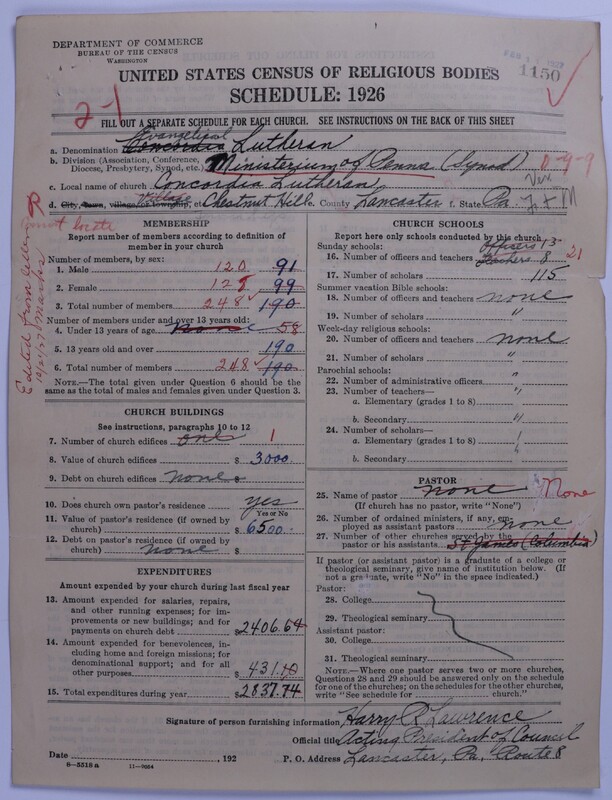 DEPARTMENT OF COMMERCE
BUREAU OF THE CENSUS
WASHINGTON
1150
UNITED STATES CENSUS OF RELIGIOUS BODIES
SCHEDULE: 1926
2-1
FILL OUT A SEPARATE SCHEDULE FOR EACH CHURCH. SEE INSTRUCTIONS ON THE BACK OF THIS SHEET
Evangelical
a. Denomination Concordia Lutheran
b. Division (Association, Conference, Diocese, Presbytery, Synod, etc.) Ministerium of Penna (Synod) 0-9-9
c. Local name of church Concordia Lutheran
d. City, town, village, or township, etc. Village Chestnut Hill e. County Lancaster f. State Pa.
MEMBERSHIP
Report number of members according to definition of
member in your church
Number of members, by sex:
1. Male 120 91
2. Female 127 99
3. Total number of members 248 190
Number of members under and over 13 years old:
4. Under 13 years of age None 58
5. 13 years old and over 190
6. Total number of members 248 190
NOTE.—The total given under Question 6 should be the
same as the total of males and females given under Question 3.
CHURCH BUILDINGS
See instructions, paragraphs 10 to 12
7. Number of church edifices one 1
8. Value of church edifices $ 3000.
9. Debt on church edifices none
10. Does church own pastor's residence yes
Yes or No
11. Value of pastor's residence (if owned by
church) $ 6500.
12. Debt on pastor's residence (if owned by
church) none $
EXPENDITURES
Amount expended by your church during last fiscal year
13. Amount expended for salaries, repairs,
and other running expenses; for im-
provements or new buildings; and for
payments on church debt $2406.64
14. Amount expended for benevolences, in-
cluding home and foreign missions; for
denominational support; and for all
other purposes 431.10
15. Total expenditures during year $2837.74
CHURCH SCHOOLS
Report here only schools conducted by this church
Sunday schools: Officers 13
16. Number of officers and teachers Teachers 8 21
17. Number of scholars 115
Summer vacation Bible schools:
18. Number of officers and teachers none
19. Number of scholars "
Week-day religious schools:
20. Number of officers and teachers none
21. Number of scholars "
Parochial schools:
22. Number of administrative officers "
23. Number of teachers—
a. Elementary (grades 1 to 8) "
b. Secondary "
24. Number of scholars—
a. Elementary (grades 1 to 8)
b. Secondary
PASTOR
25. Name of pastor none None
(If church has no pastor, write "None")
26. Number of ordained ministers, if any, em-
ployed as assistant pastors none
27. Number of other churches served by the
pastor or his assistants St James (Columbia)
If pastor (or assistant pastor) is a graduate of a college or
theological seminary, give name of institution below. (If
not a graduate, write "No" in the space indicated.)
Pastor:
28. College
29. Theological seminary
Assistant pastor:
30. College
31. Theological seminary
NOTE.—Where one pastor serves two or more churches,
Questions 28 and 29 should be answered only on the schedule
for one of the churches; on the schedules for the other churches,
write "See schedule for church."
Signature of person furnishing information, Harry R Lawrence
Official title Acting President of Council
Date , 192 P. O. Address Lancaster, Pa, Route 8
8-5518 a 11-9664